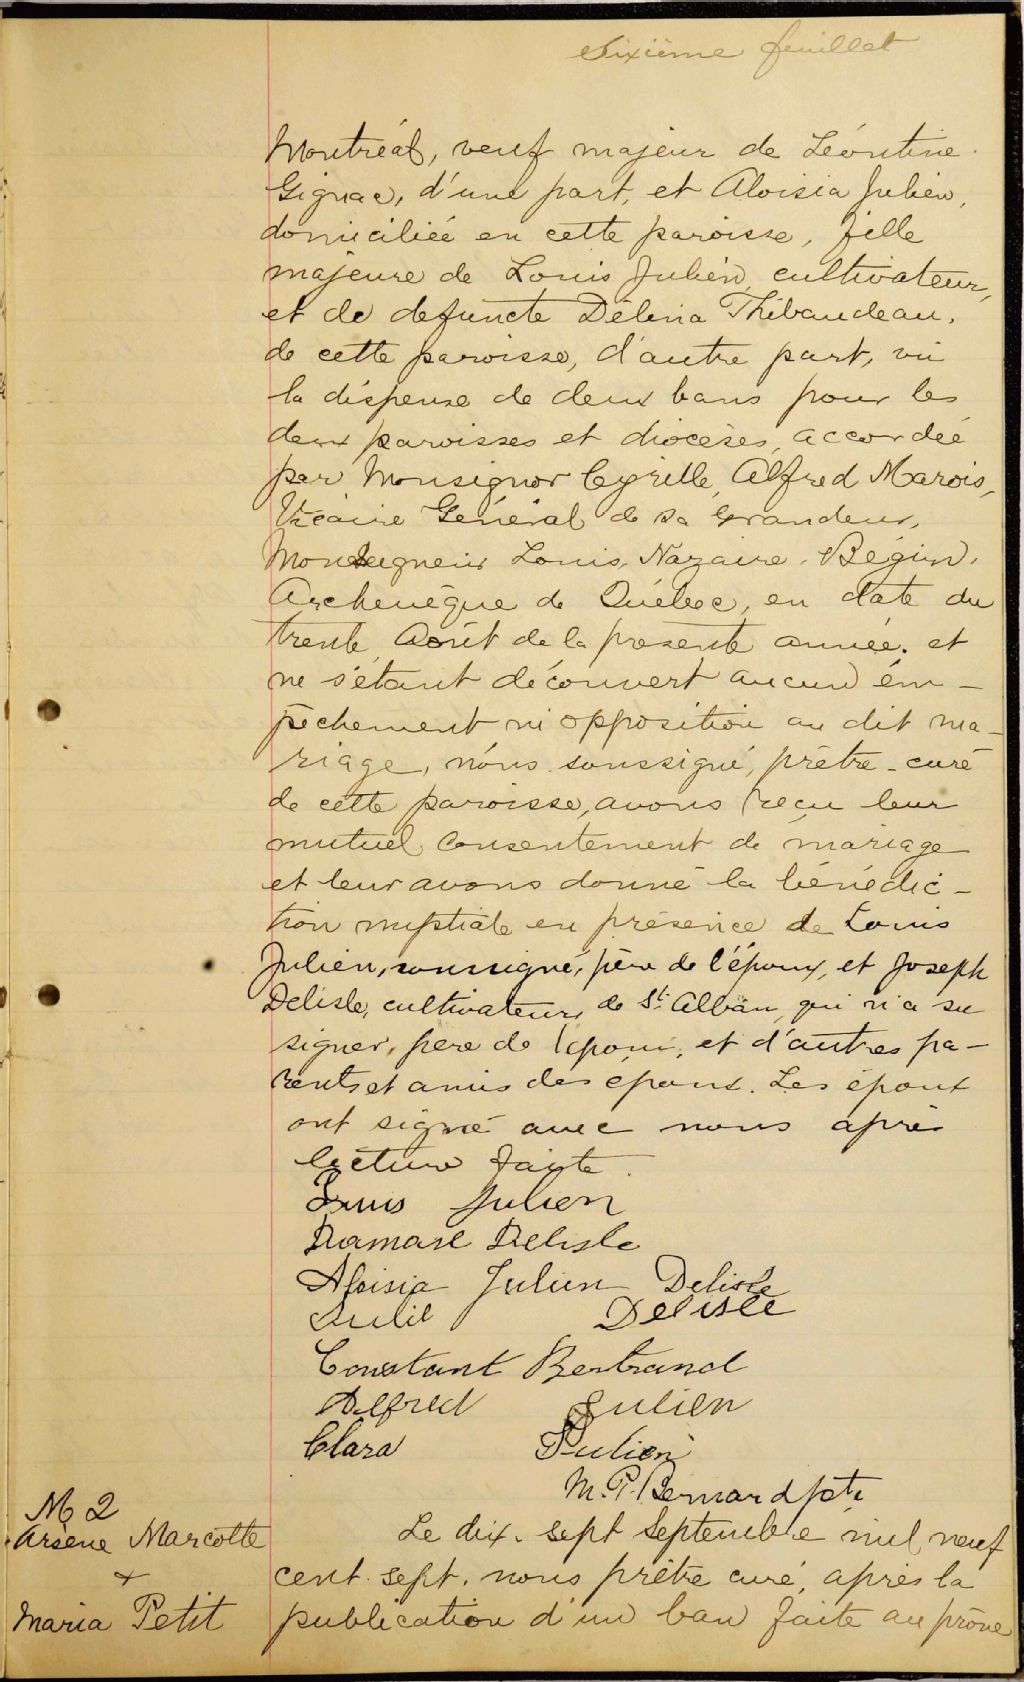 Sixième feuillet
Montréal, veuf majeur de Léontine
Gignac, d'une part, et Aloisia Julien,
domiciliée en cette paroisse, fille
majeure de Louis Julien, cultivateur,
et de defuncte Délina Thibaudeau,
de cette paroisse, d'autre part, vu
la dispense de deux bans pour les
deux paroisses et diocèses, accordée
par Monsignor Cyrille Alfred Marois,
Vicaire Général de sa Grandeur,
Monseigneur Louis Nazaire Bégin,
Archevêque de Québec, en date du
trente Août de la présente année, et
ne s'étant découvert aucun em-
pêchement ni opposition au dit ma-
riage, nous soussigné, prêtre-curé
de cette paroisse, avons reçu leur
mutuel consentement de mariage
et leur avons donné la bénédic-
tion nuptiale en présence de Louis
Julien, soussigné, père de l'époux, et Joseph
Delisle, cultivateur, de St. Alban, qui n'a su
signer, père de l'époux, et d'autres pa-
rents et amis des epoux. Les époux
ont signé avec nous après
lecture faite.
Louis Julien
Damase Delisle
Aloisia Julien Delisle
Delisle
Constant Bertrand
Alfred Julien
Clara Julien
M. P. Bernard ptr.
M 2
Arsène Marcotte
+
Maria Petit
Le dix-sept septembre mil neuf
cent-sept, nous prêtre curé, après la
publication d'un ban faite au prône